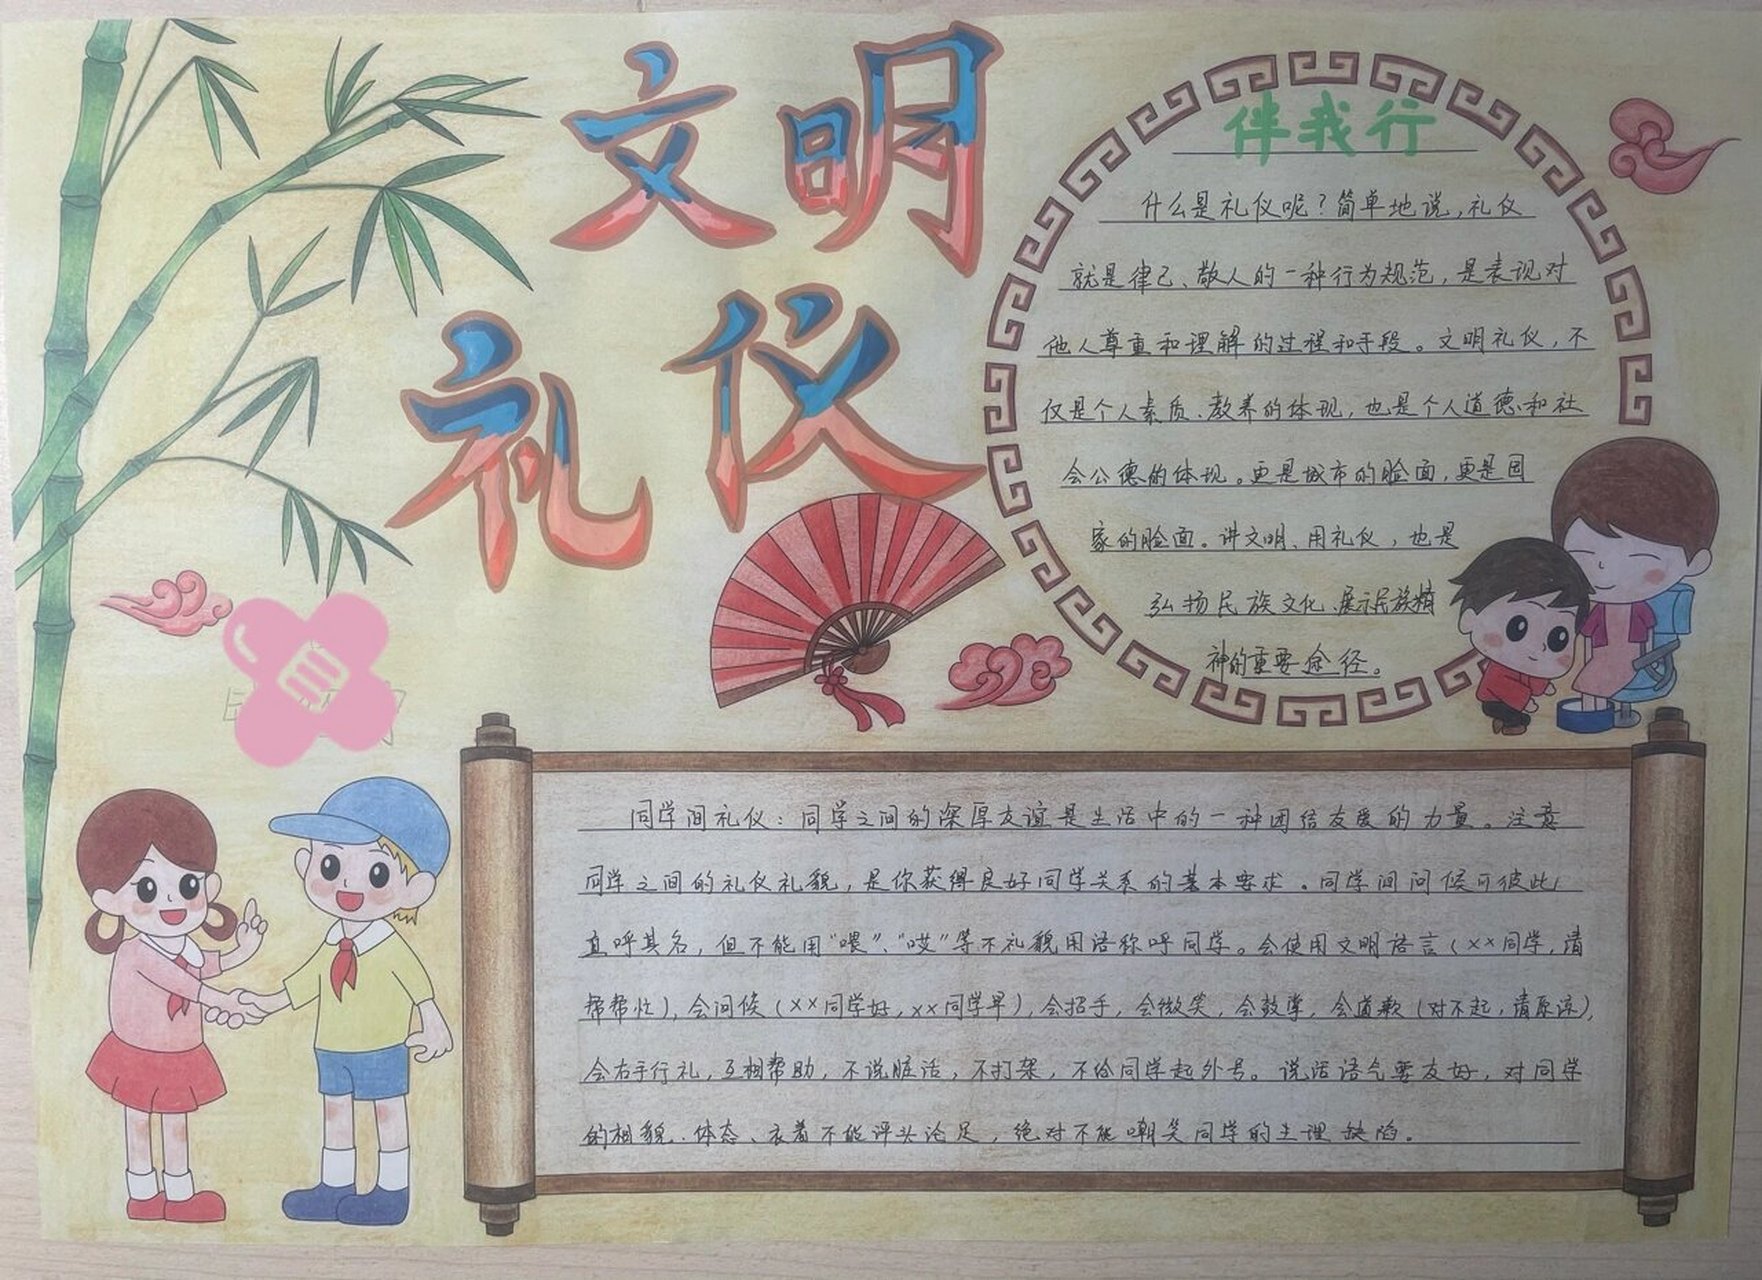 文明
礼仪
伴我行
什么是礼仪呢?简单地说,礼仪
就是律己、敬人的一种行为规范,是表现对
他人尊重和理解的过程和手段。文明礼仪,不
仅是个人素质、教养的体现,也是个人道德和社
会公德的体现。更是城市的脸面,更是国
家的脸面。讲文明、用礼仪,也是
弘扬民族文化、展示民族精
神的重要途径。
同学间礼仪:同学之间的深厚友谊是生活中的一种团结友爱的力量。注意
同学之间的礼仪礼貌,是你获得良好同学关系的基本要求。同学间问候可彼此
直呼其名,但不能用“喂”、“哎”等不礼貌用语称呼同学。会使用文明语言(××同学,请
帮帮忙),会问候(××同学好,××同学早),会招手,会微笑,会鼓掌,会道歉(对不起,请原谅),
会右手行礼,互相帮助,不说脏话,不打架,不给同学起外号。说话语气要友好,对同学
的相貌、体态、衣着不能评头论足,绝对不能嘲笑同学的生理缺陷。